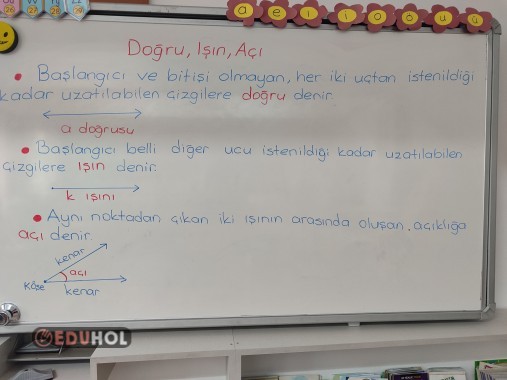 a e ı i o ö u ü
Doğru, Işın, Açı
• Başlangıcı ve bitişi olmayan, her iki uçtan istenildiği
kadar uzatılabilen çizgilere doğru denir.
a doğrusu
• Başlangıcı belli diğer ucu istenildiği kadar uzatılabilen
çizgilere ışın denir.
k ışını
• Aynı noktadan çıkan iki ışının arasında oluşan açıklığa
açı denir.
kenar
açı
Köşe
kenar
EDUHOL